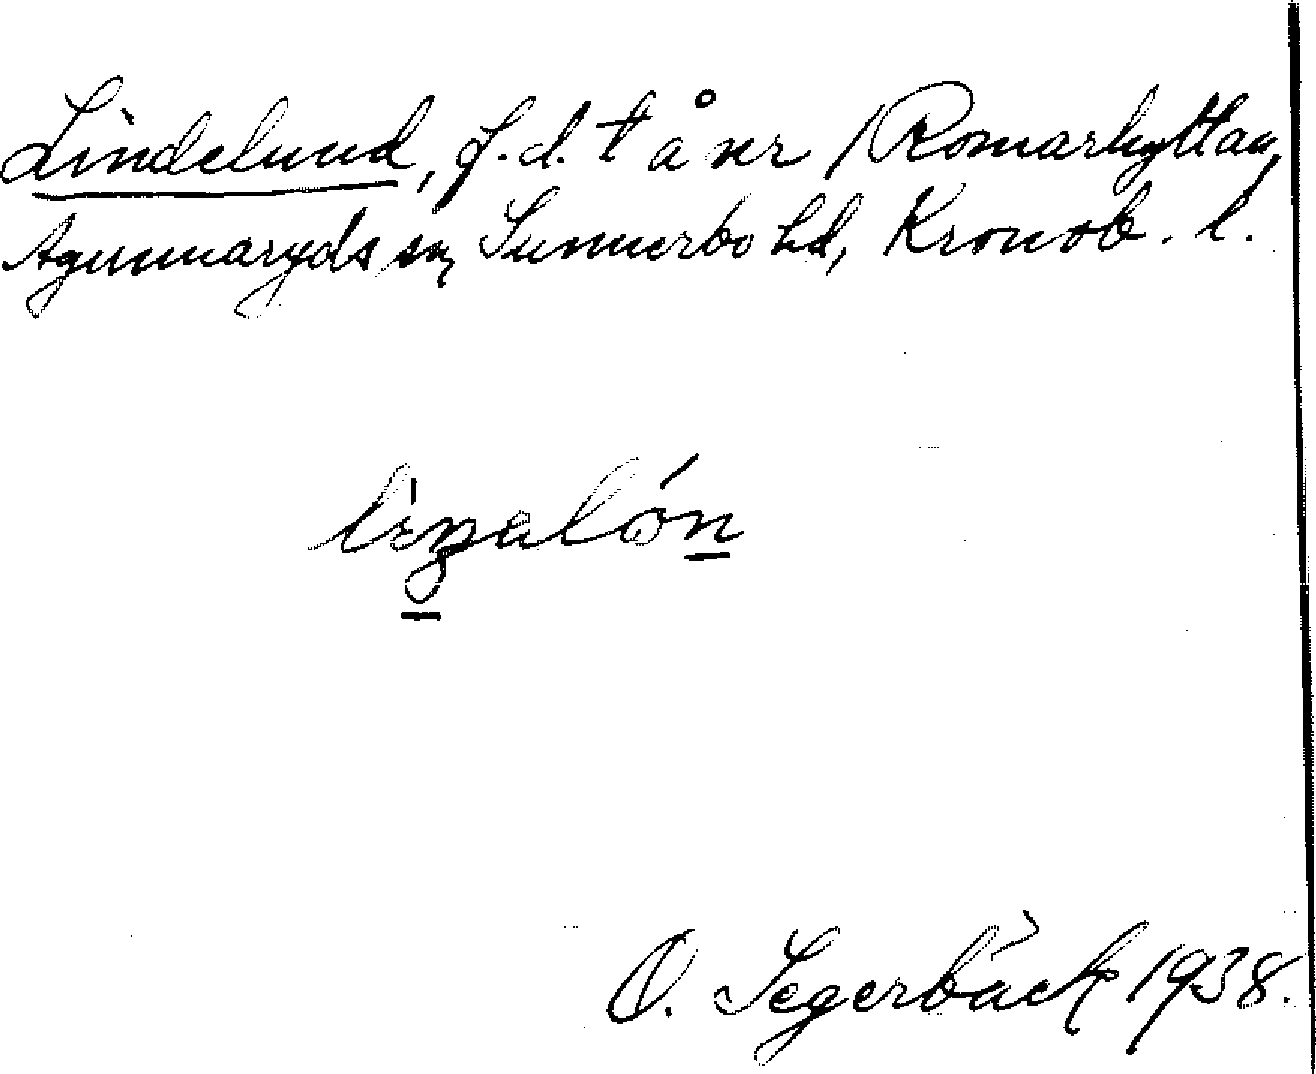 Lindelund, f.d. t å nr 1 Romarhyttan,
Agunnaryds sn, Sunnerbo hd, Kronob. l.
O. Segerbäck 1938.